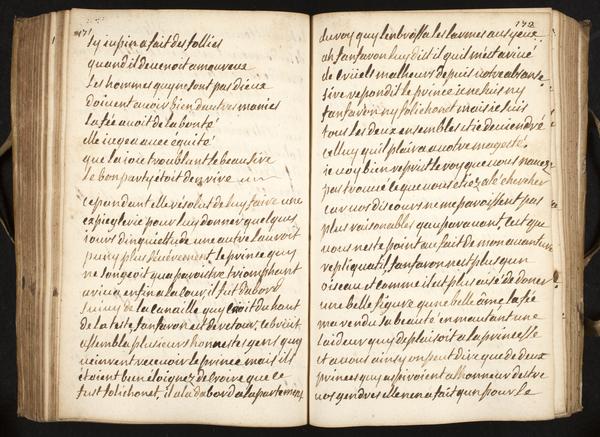 171
sy jupin a fait des follies
quand il devenoit amoureux
les hommes quy ne sont pas dieux
doivent avoir bien d'autres manies
la fée avoit de la bonté
elle jugea avec équité
que la joie troublant le beau sire
le bon party étoit d'en rire
cependant elle résolut de luy faire une
espieglerie pour luy donner quelques
jours d'inquiettude une autre l'auroit
puny plus sévèrement le prince quy
ne songeoit qu'a paroistre triomphant
ariva enfin a la cour, il fut d'abord
suivy de la canaille quy crioit du haut
de la teste, fanfaron est de retour, ce bruit
assembla plusieurs honnestes gens quy
vinrent recevoir le prince mais ils
étoient bien éloignez de croire que ce
fust folichonet, il ala d'abord a l'apartement
172
du roy quy l'enbrassa les larmes aux yeux
ah fanfaron luy dist il qu'il m'est arivé
de cruels malheurs depuis votre absance
sire repondit le prince je ne suis ny
fanfaron ny folichonet mais je suis
tous les deux ensembles et je deviendré
celluy qu'il plaira a votre magesté
je voy bien reprist le roy que vous n'avez
pas trouvé ce que vous etiez alé chercher
car vos discours ne me paroissent pas
plus raisonables qu'auparavant, c'est que
vous n'este point au fait de mon avanture
repliqua t'il, fanfaron n'est plus qu'un
oiseau et comme il est plus aisé de doner
une belle figure qu'une belle ame la fée
m'a rendu sa beauté en m'autant une
laideur quy deplaisoit a la princesse
et a vous ainsy on peut dire que de deux
princes quy aspiroient a l'honneur d'estre
vos gendres elle n'en a fait qu'un pour le